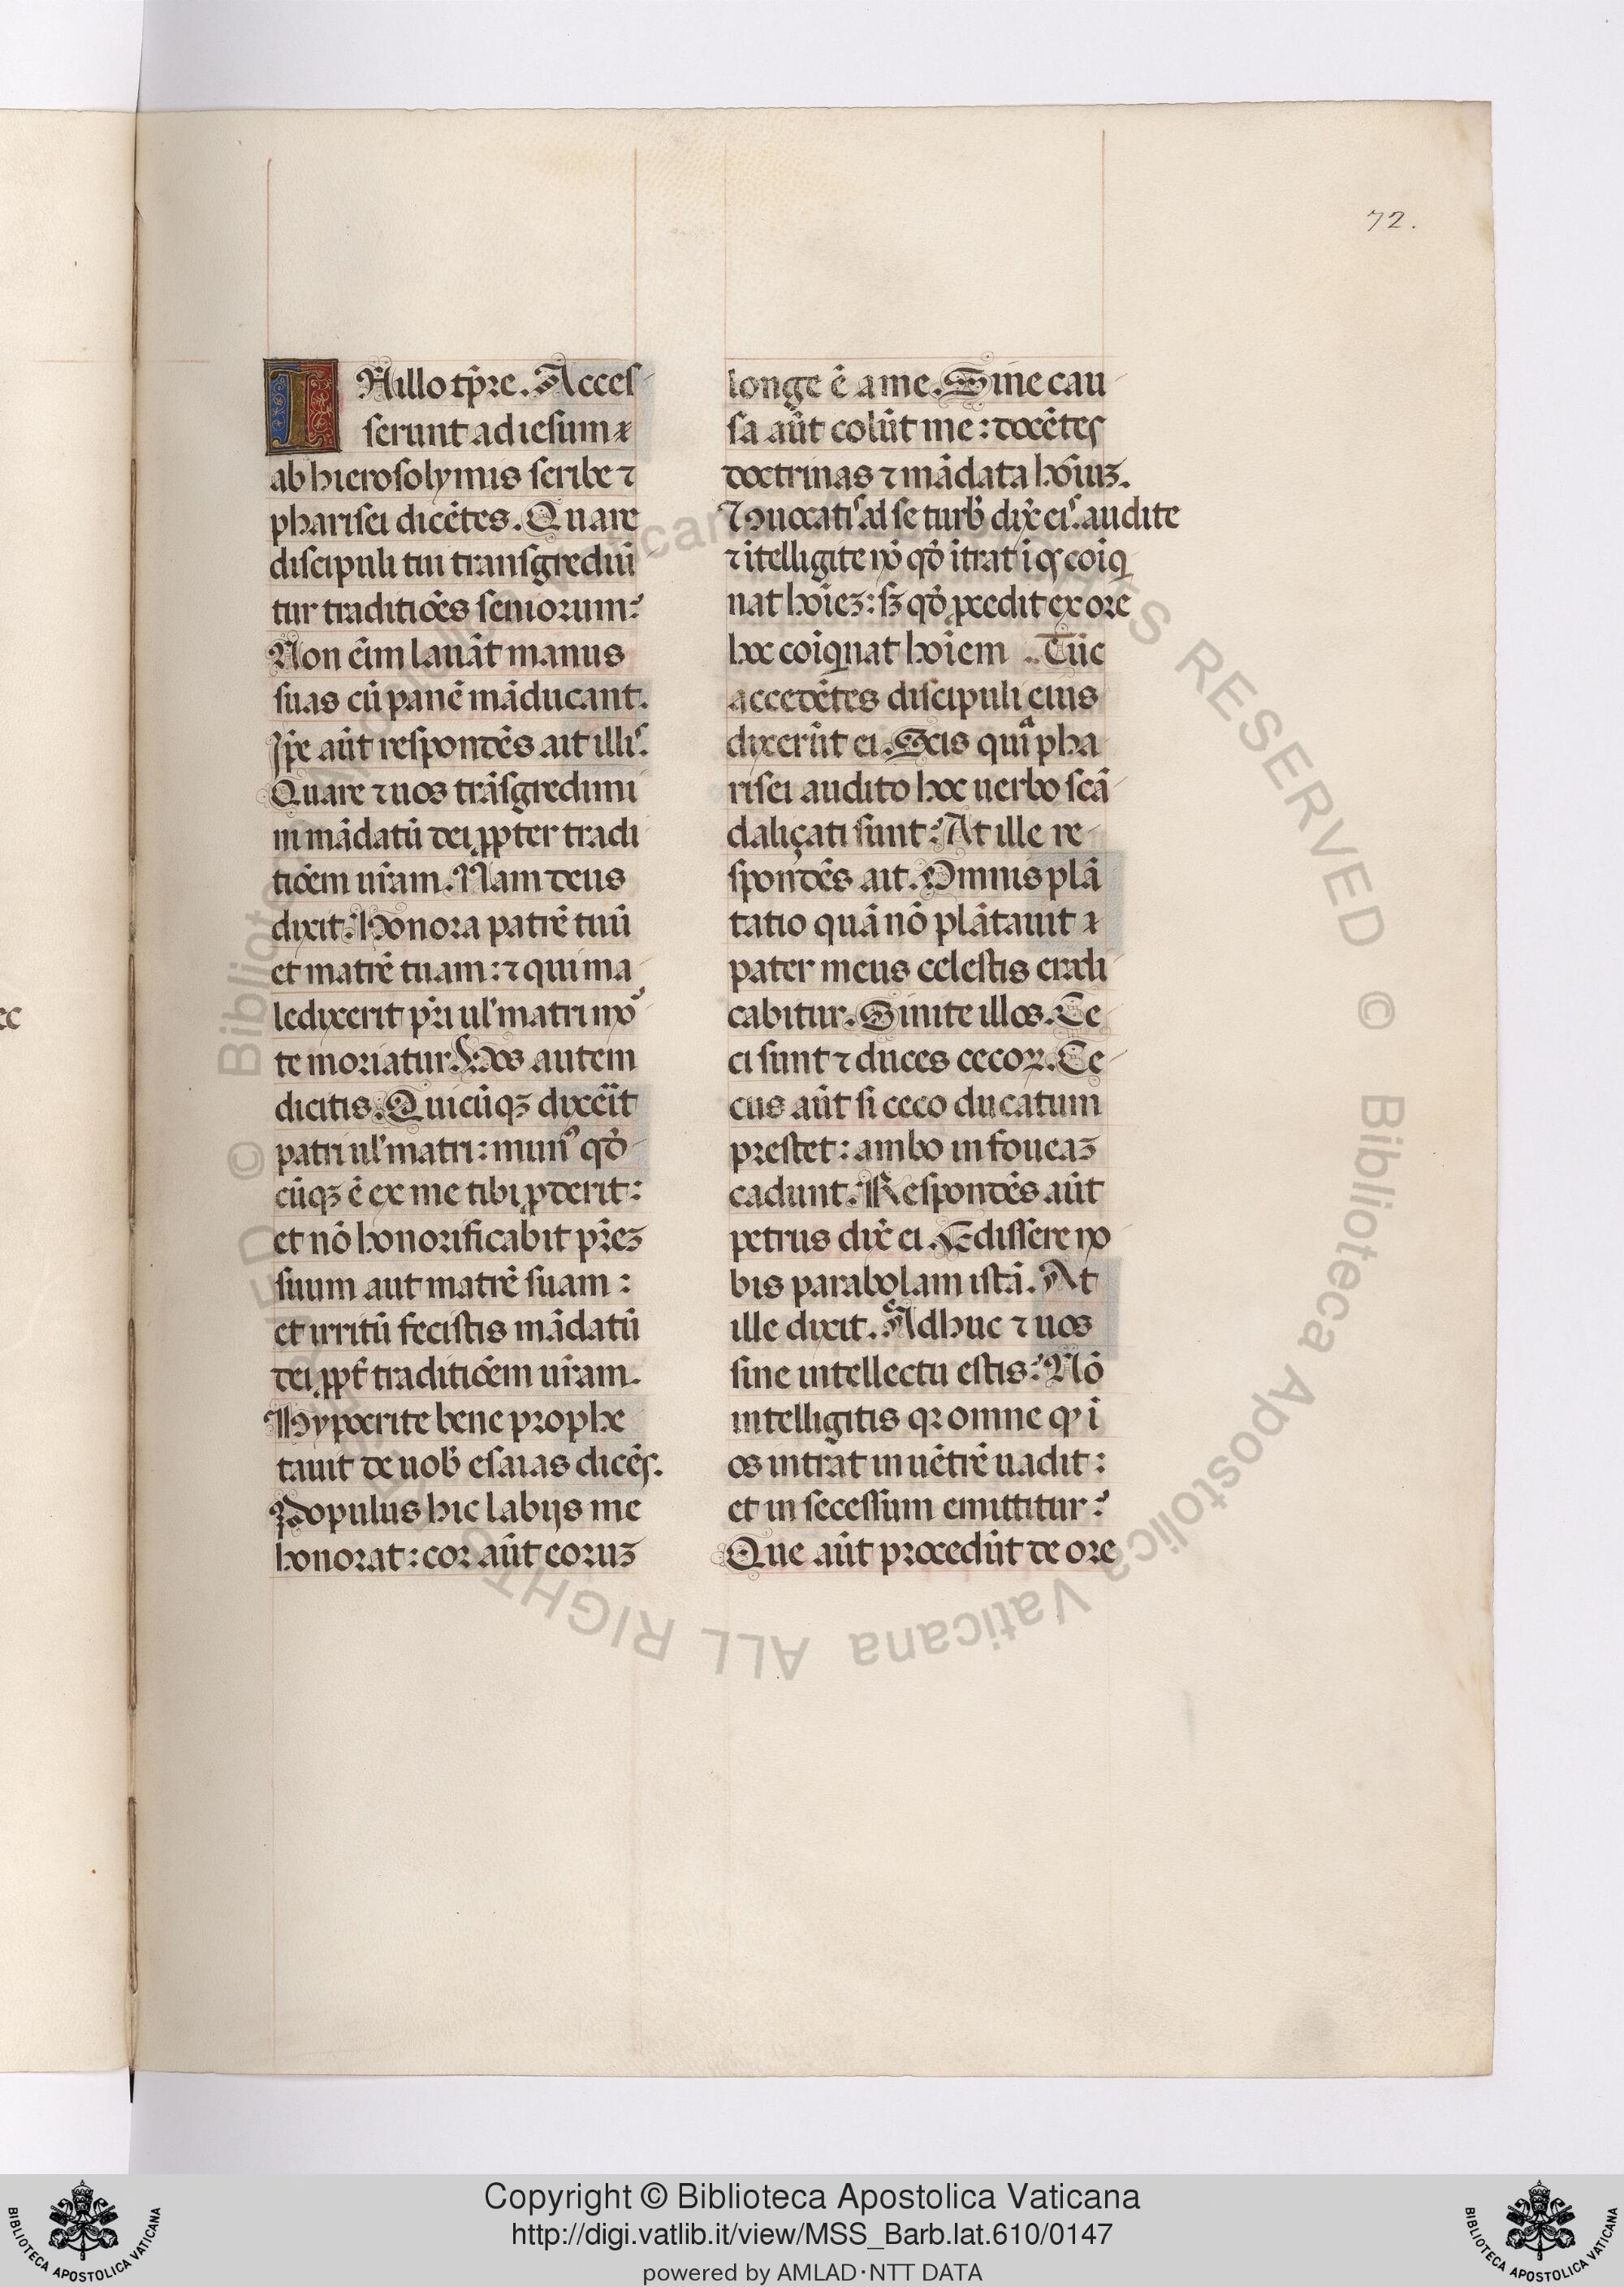 72.
IN illo tp̄re. Acces
serunt ad iesum
ab hierosolymis scribe ⁊
pharisei dicētes. Quare
discipuli tui transgrediū
tur traditiōes seniorum?
Non eīm lauāt manus
suas cū panē māducant.
Ip̄e aūt respondēs ait illis.
Quare ⁊ uos trāsgredimi
ni mādatū dei ꝓpter tradi
tiōem ur̄am. Nam deus
dixit. Honora patrē tuū
et matrē tuam: ⁊ qui ma
ledixerit pr̄i ul' matri mor
te moriatur. Vos autem
dicitis. Quicūqꝫ dixēit
patri ul' matri: munꝰ qḋ
cūqꝫ ē ex me tibi ꝓderit:
et nō honorificabit pr̄eꝫ
suum aut matrē suam:
et irritū fecistis mādatū
dei ꝓpt̄ traditiōem ur̄am.
Hypocrite bene prophe
tauit de uob̄ esaias dicēs.
Populus hic labijs me
honorat: cor aūt eoruꝫ
longe ē a me. Sine cau
sa aūt colūt me: docētes
doctrinas ⁊ mādata hoīuꝫ.
Cōuocatis ad se turb̄ dix̄ eis. audite
⁊ ītelligite nō qḋ ītrat ī os coīq
nat hoīeꝫ: sꝫ qḋ ꝓcedit ex ore
hoc coīqnat hoīem. Tūc
accedētes discipuli eius
dixerūt ei. Scis quīa pha
risei audito hoc uerbo scā
daliçati sunt? At ille re
spondēs ait. Omnis plā
tatio quā nō plātauit
pater meus celestis eradi
cabitur. Sinite illos. Ce
ci sunt ⁊ duces cecoꝝ. Ce
cus aūt si ceco ducatum
prestet: ambo in foueaꝫ
cadunt. Respondēs aūt
petrus dix̄ ei. Edissere no
bis parabolam istā. At
ille dixit. Adhuc ⁊ uos
sine intellectu estis? Nō
intelligitis qꝛ omne qḋ ī
os intrat in uētrē uadit:
et in secessum emittitur?
Que aūt procedūt de ore
© Biblioteca Apostolica Vaticana ALL RIGHTS RESERVED
Copyright © Biblioteca Apostolica Vaticana
http://digi.vatlib.it/view/MSS_Barb.lat.610/0147
powered by AMLAD·NTT DATA
BIBLIOTECA APOSTOLICA VATICANA
BIBLIOTECA APOSTOLICA VATICANA